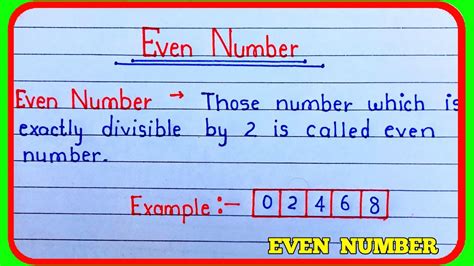 Even Number
Even Number → Those number which is
exactly divisible by 2 is called even
number.
Example :- 0 2 4 6 8
EVEN NUMBER